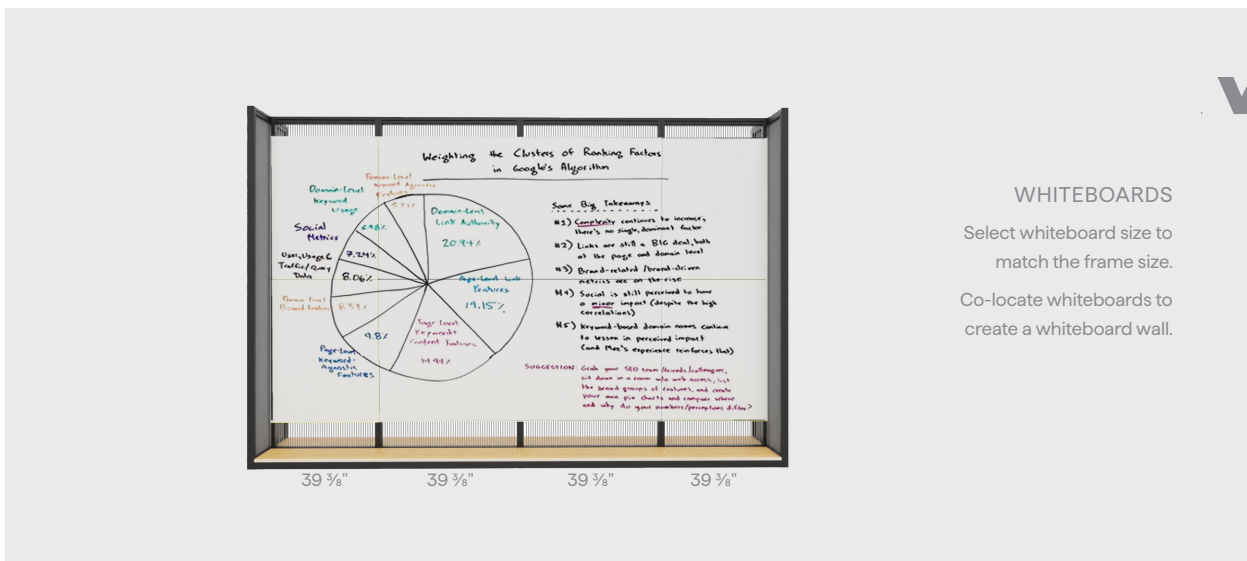 Weighting the Clusters of Ranking Factors
in Google's Algorithm
Domain-Level
Keyword Agnostic
Features
5.21%
Domain-Level
Keyword
Usage
6.98%
Social
Metrics
7.24%
User, Usage &
Traffic/Query
Data
8.06%
Domain Level
Brand Features
8.59%
Page-Level
Keyword-
Agnostic
Features
9.8%
Page-Level
Keyword &
Content Features
14.94%
Page-Level Link
Features
19.15%
Domain-Level
Link Authority
20.94%
Some Big Takeaways
#1) Complexity continues to increase,
there's no single, dominant factor
#2) Links are still a BIG deal, both
at the page and domain level
#3) Brand-related/brand-driven
metrics are on the rise
#4) Social is still perceived to have
a minor impact (despite the high
correlations)
#5) Keyword-based domain names continue
to lessen in perceived impact
(and Moz's experience reinforces that)
SUGGESTION: Grab your SEO team/friends/colleagues,
sit down in a room w/o web access, list
the broad groups of features, and create
your own pie charts and compare where
and why do your numbers/perceptions differ?
39 ⅜"
39 ⅜"
39 ⅜"
39 ⅜"
WHITEBOARDS
Select whiteboard size to
match the frame size.
Co-locate whiteboards to
create a whiteboard wall.